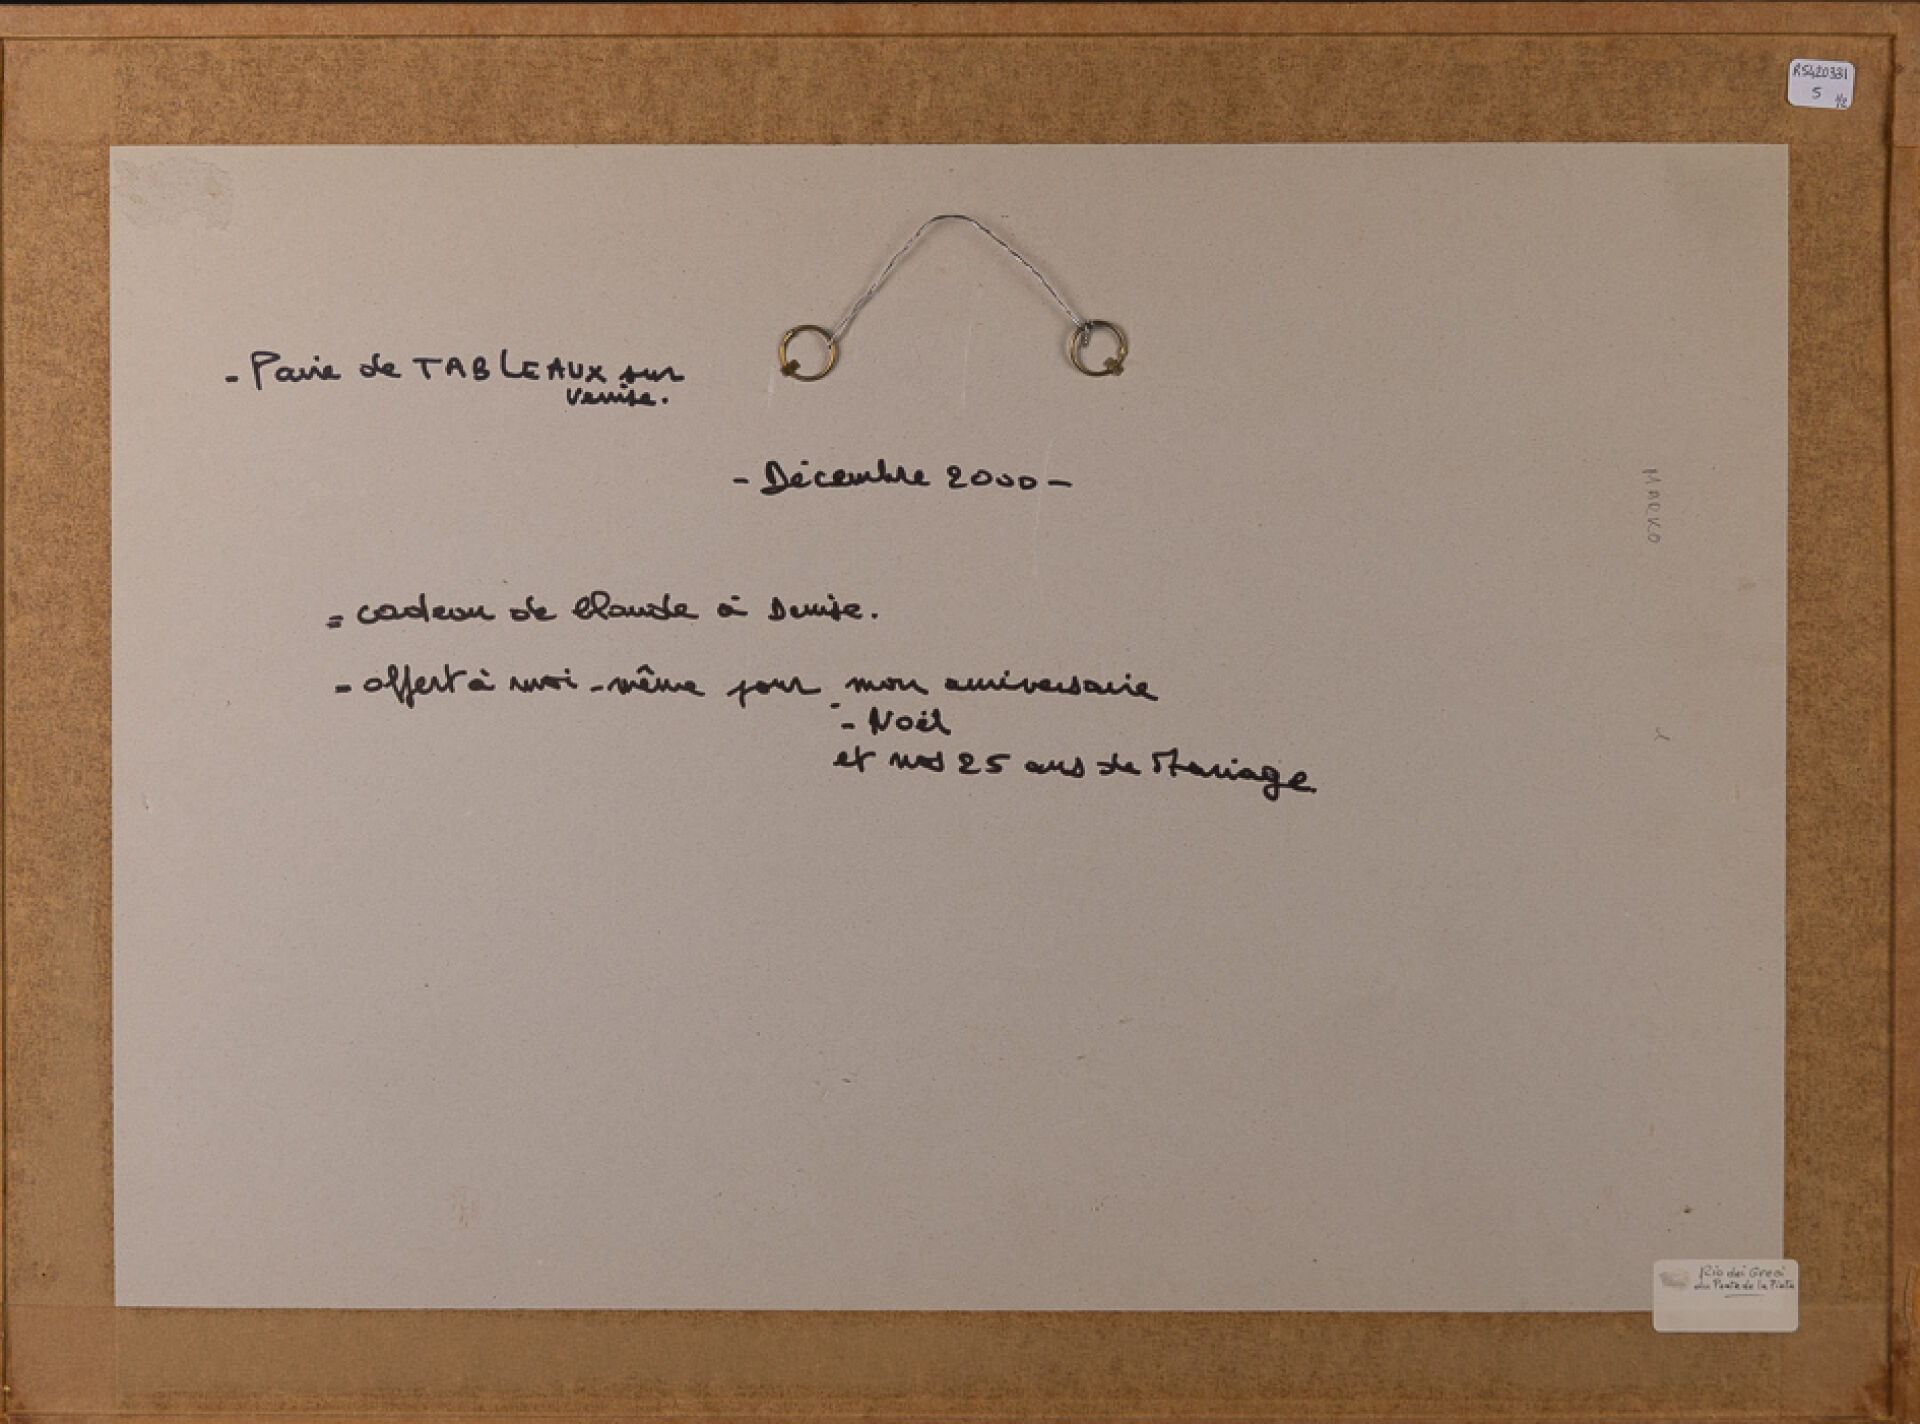 R5420331
5 1/2
- Paire de TABLEAUX sur
Venise.
- Décembre 2000 -
MARKO
= cadeau de Claude à Denise.
- offert à moi-même pour mon anniversaire
- Noël
et nos 25 ans de Mariage
Rio dei Greci
du Ponte de la Pieta